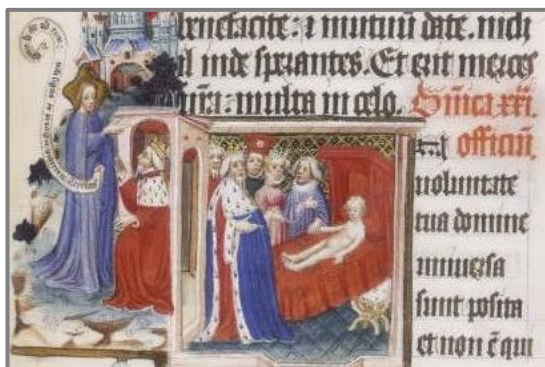 benefacite: ⁊ mutuū date. nich
il inde sperantes. Et erit merces
vr̄a: multa in celo. Dn̄ica xxi.
officiū.
voluntate
tua domine
universa
sunt posita
et non ē qui